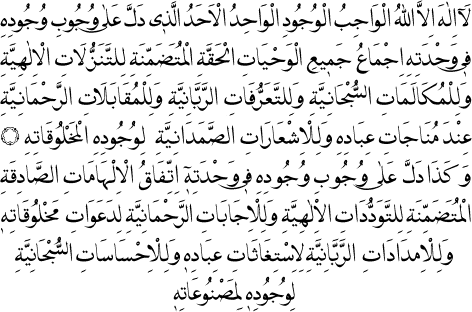 لَآ اِلٰهَ اِلاَّ اللّٰهُ الْوَاجِبُ الْوُجُودِ الْوَاحِدُ الْاَحَدُ الَّذِى دَلَّ عَلٰى وُجُوبِ وُجُودِهِ
فِى وَحْدَتِهِ اِجْمَاعُ جَمِيعِ الْوَحْيَاتِ الْحَقَّةِ الْمُتَضَمِّنَةِ لِلتَّنَزُّلَاتِ الْاِلٰهِيَّةِ
وَلِلْمُكَالَمَاتِ السُّبْحَانِيَّةِ وَلِلتَّعَرُّفَاتِ الرَّبَّانِيَّةِ وَلِلْمُقَابَلَاتِ الرَّحْمَانِيَّةِ
عِنْدَ مُنَاجَاتِ عِبَادِهِ وَلِلْاِشْعَارَاتِ الصَّمَدَانِيَّةِ لِوُجُودِهِ لِمَخْلُوقَاتِهِ ۞
وَ كَذَا دَلَّ عَلٰى وُجُوبِ وُجُودِهِ فِى وَحْدَتِهِ اِتِّفَاقُ الْاِلْهَامَاتِ الصَّادِقَةِ
الْمُتَضَمِّنَةِ لِلتَّوَدُّدَاتِ الْاِلٰهِيَّةِ وَلِلْاِجَابَاتِ الرَّحْمَانِيَّةِ لِدَعَوَاتِ مَخْلُوقَاتِهِ
وَلِلْاِمْدَادَاتِ الرَّبَّانِيَّةِ لِاِسْتِغَاثَاتِ عِبَادِهِ وَلِلْاِحْسَاسَاتِ السُّبْحَانِيَّةِ
لِوُجُودِهِ لِمَصْنُوعَاتِهِ